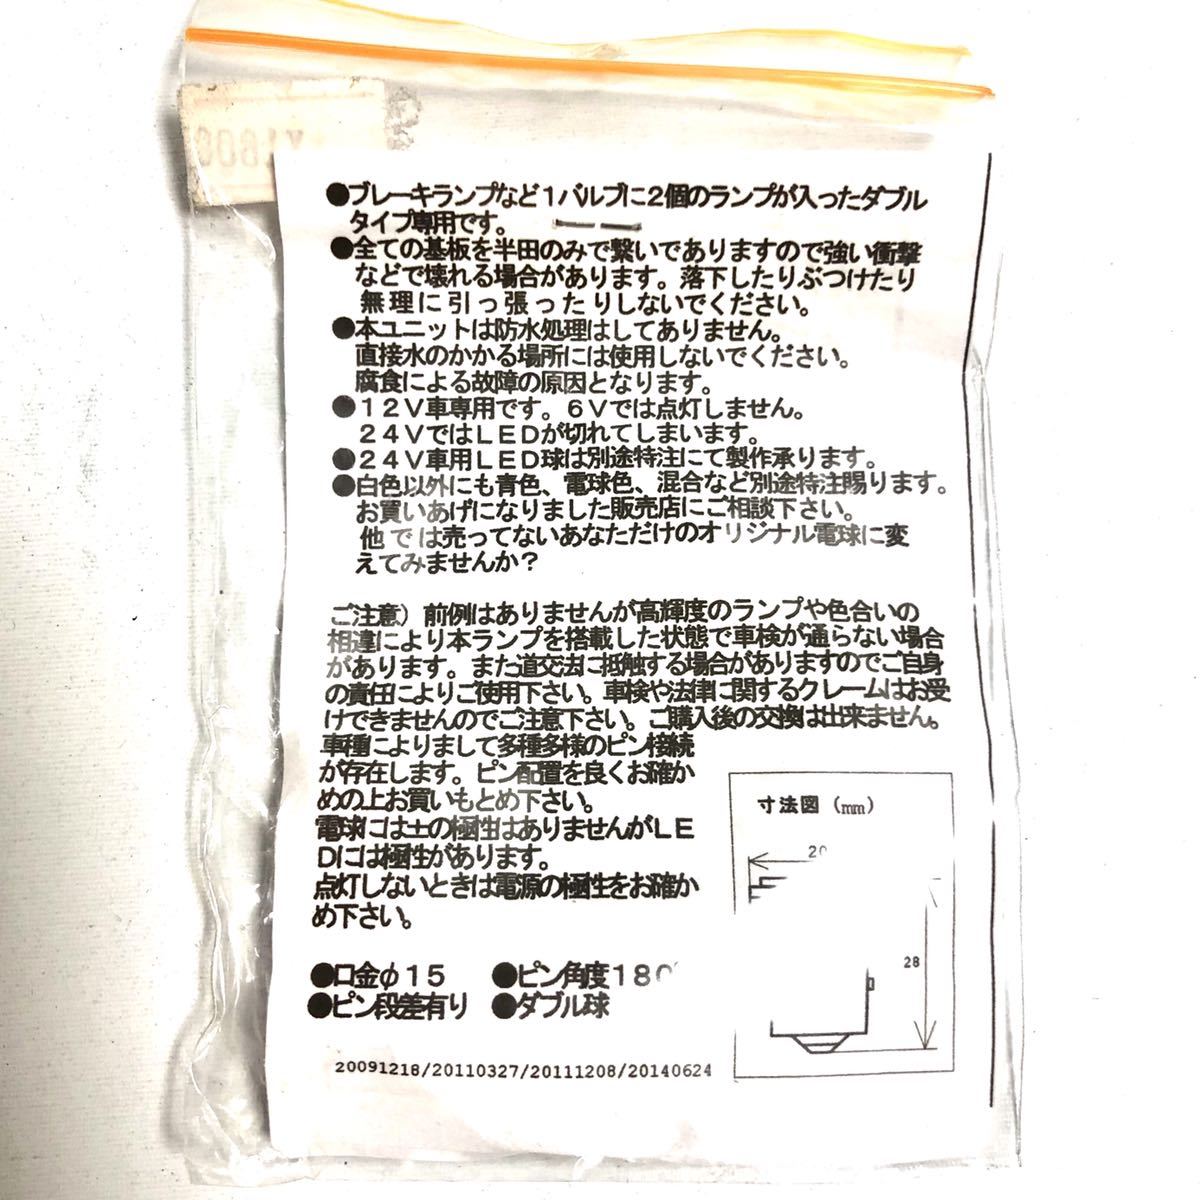 ●ブレーキランプなど１バルブに２個のランプが入ったダブル
タイプ専用です。
●全ての基板を半田のみで繋いでありますので強い衝撃
などで壊れる場合があります。落下したりぶつけたり
無理に引っ張ったりしないでください。
●本ユニットは防水処理はしてありません。
直接水のかかる場所には使用しないでください。
腐食による故障の原因となります。
●１２Ｖ車専用です。６Ｖでは点灯しません。
２４ＶではＬＥＤが切れてしまいます。
●２４Ｖ車用ＬＥＤ球は別途特注にて製作承ります。
●白色以外にも青色、電球色、混合など別途特注賜ります。
お買いあげになりました販売店にご相談下さい。
他では売ってないあなただけのオリジナル電球に変
えてみませんか？
ご注意）前例はありませんが高輝度のランプや色合いの
相違により本ランプを搭載した状態で車検が通らない場合
があります。また道交法に抵触する場合がありますのでご自身
の責任によりご使用下さい。車検や法律に関するクレームはお受
けできませんのでご注意下さい。ご購入後の交換は出来ません。
車種によりまして多種多様のピン接続
が存在します。ピン配置を良くお確か
めの上お買いもとめ下さい。
電球には±の極性はありませんがＬＥ
Ｄには極性があります。
点灯しないときは電源の極性をお確か
め下さい。
●口金φ１５ ●ピン角度１８０
●ピン段差有り ●ダブル球
20091218/20110327/20111208/20140624
寸法図（mm）
20
28